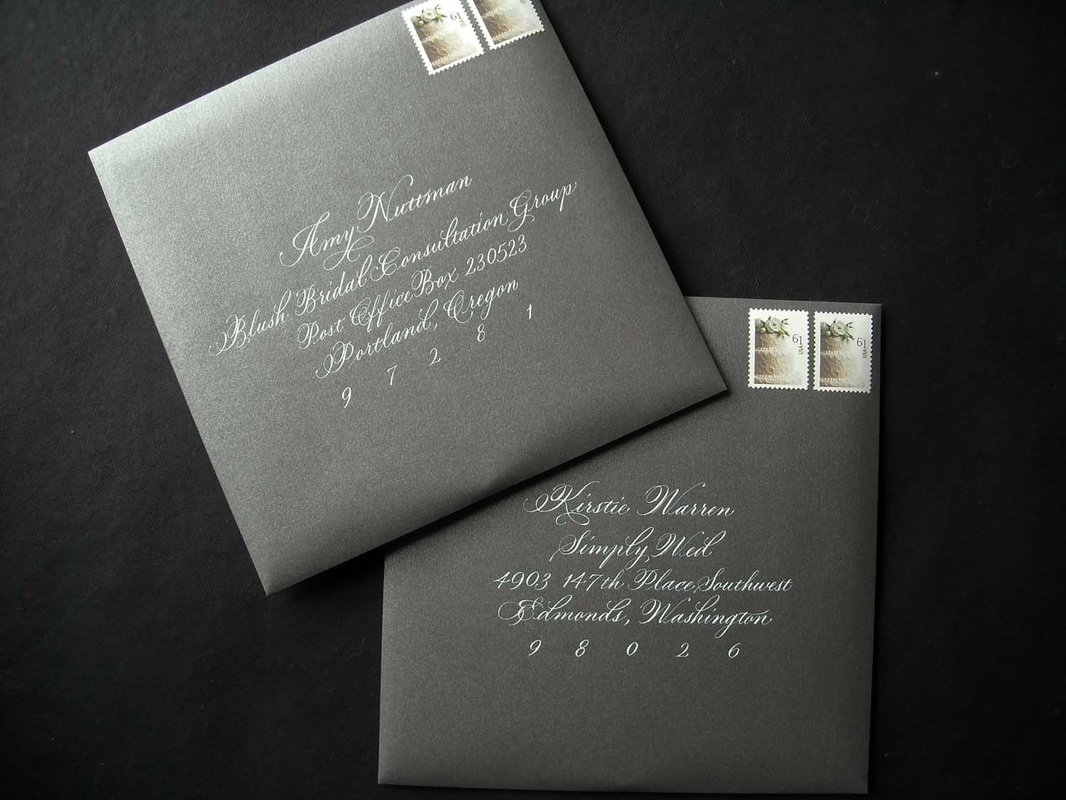 61
Amy Nuttman
Blush Bridal Consultation Group
Post Office Box 230523
Portland, Oregon
9 7 2 8 1
61
USA
61
USA
Kirstie Warren
Simply Wed
4903 147th Place Southwest
Edmonds, Washington
9 8 0 2 6